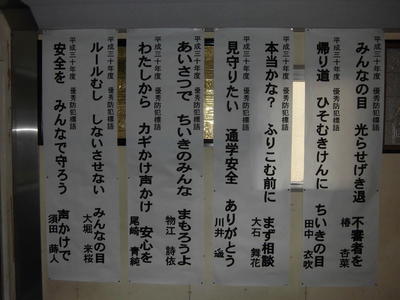 平成三十年度 優秀防犯標語
みんなの目 光らせげき退 不審者を
椿 杏菜
平成三十年度 優秀防犯標語
帰り道 ひそむきけんに ちいきの目
田中 衣吹
平成三十年度 優秀防犯標語
本当かな? ふりこむ前に まず相談
大石 舞花
平成三十年度 優秀防犯標語
見守りたい 通学安全 ありがとう
川井
平成三十年度 優秀防犯標語
あいさつで ちいきのみんな まもろうよ
物江 詩依
平成三十年度 優秀防犯標語
わたしから カギかけ声かけ 安心を
尾崎 青純
平成三十年度 優秀防犯標語
ルールむし しないさせない みんなの目
大堀 来桜
平成三十年度 優秀防犯標語
安全を みんなで守ろう 声かけで
須田 蒔人